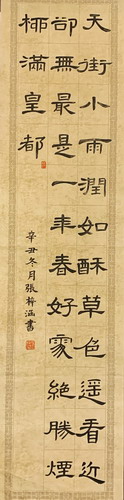 天街小雨潤如酥草色遥看近
卻無最是一年春好處絕勝煙
桺滿皇都
辛丑冬月張梓涵書